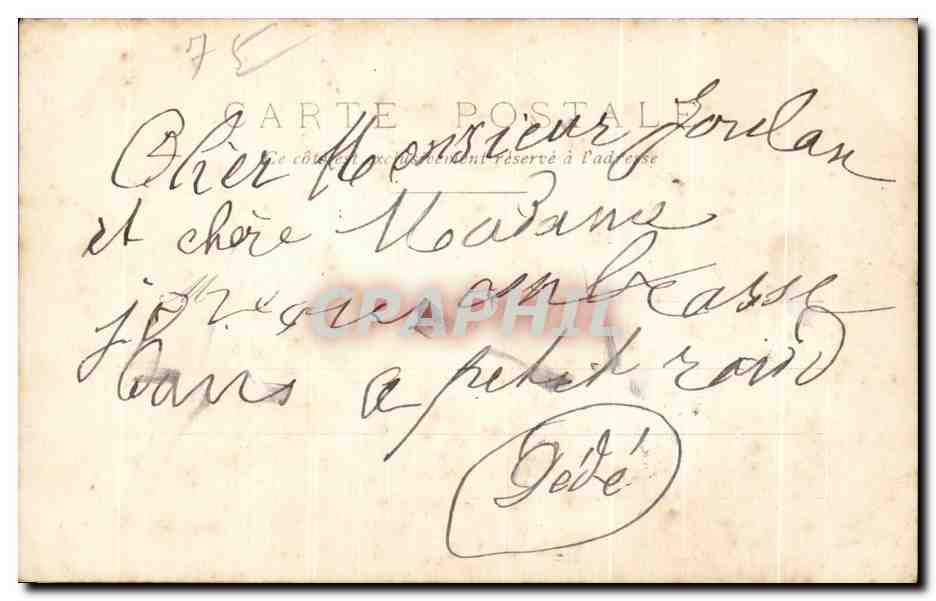 75
CARTE POSTALE
Ce côté est exclusivement réservé à l'adresse
Cher Monsieur Joulan
et chère Madame
je vous embrasse
CPAPHIL
dans ce petit rond
Dédé